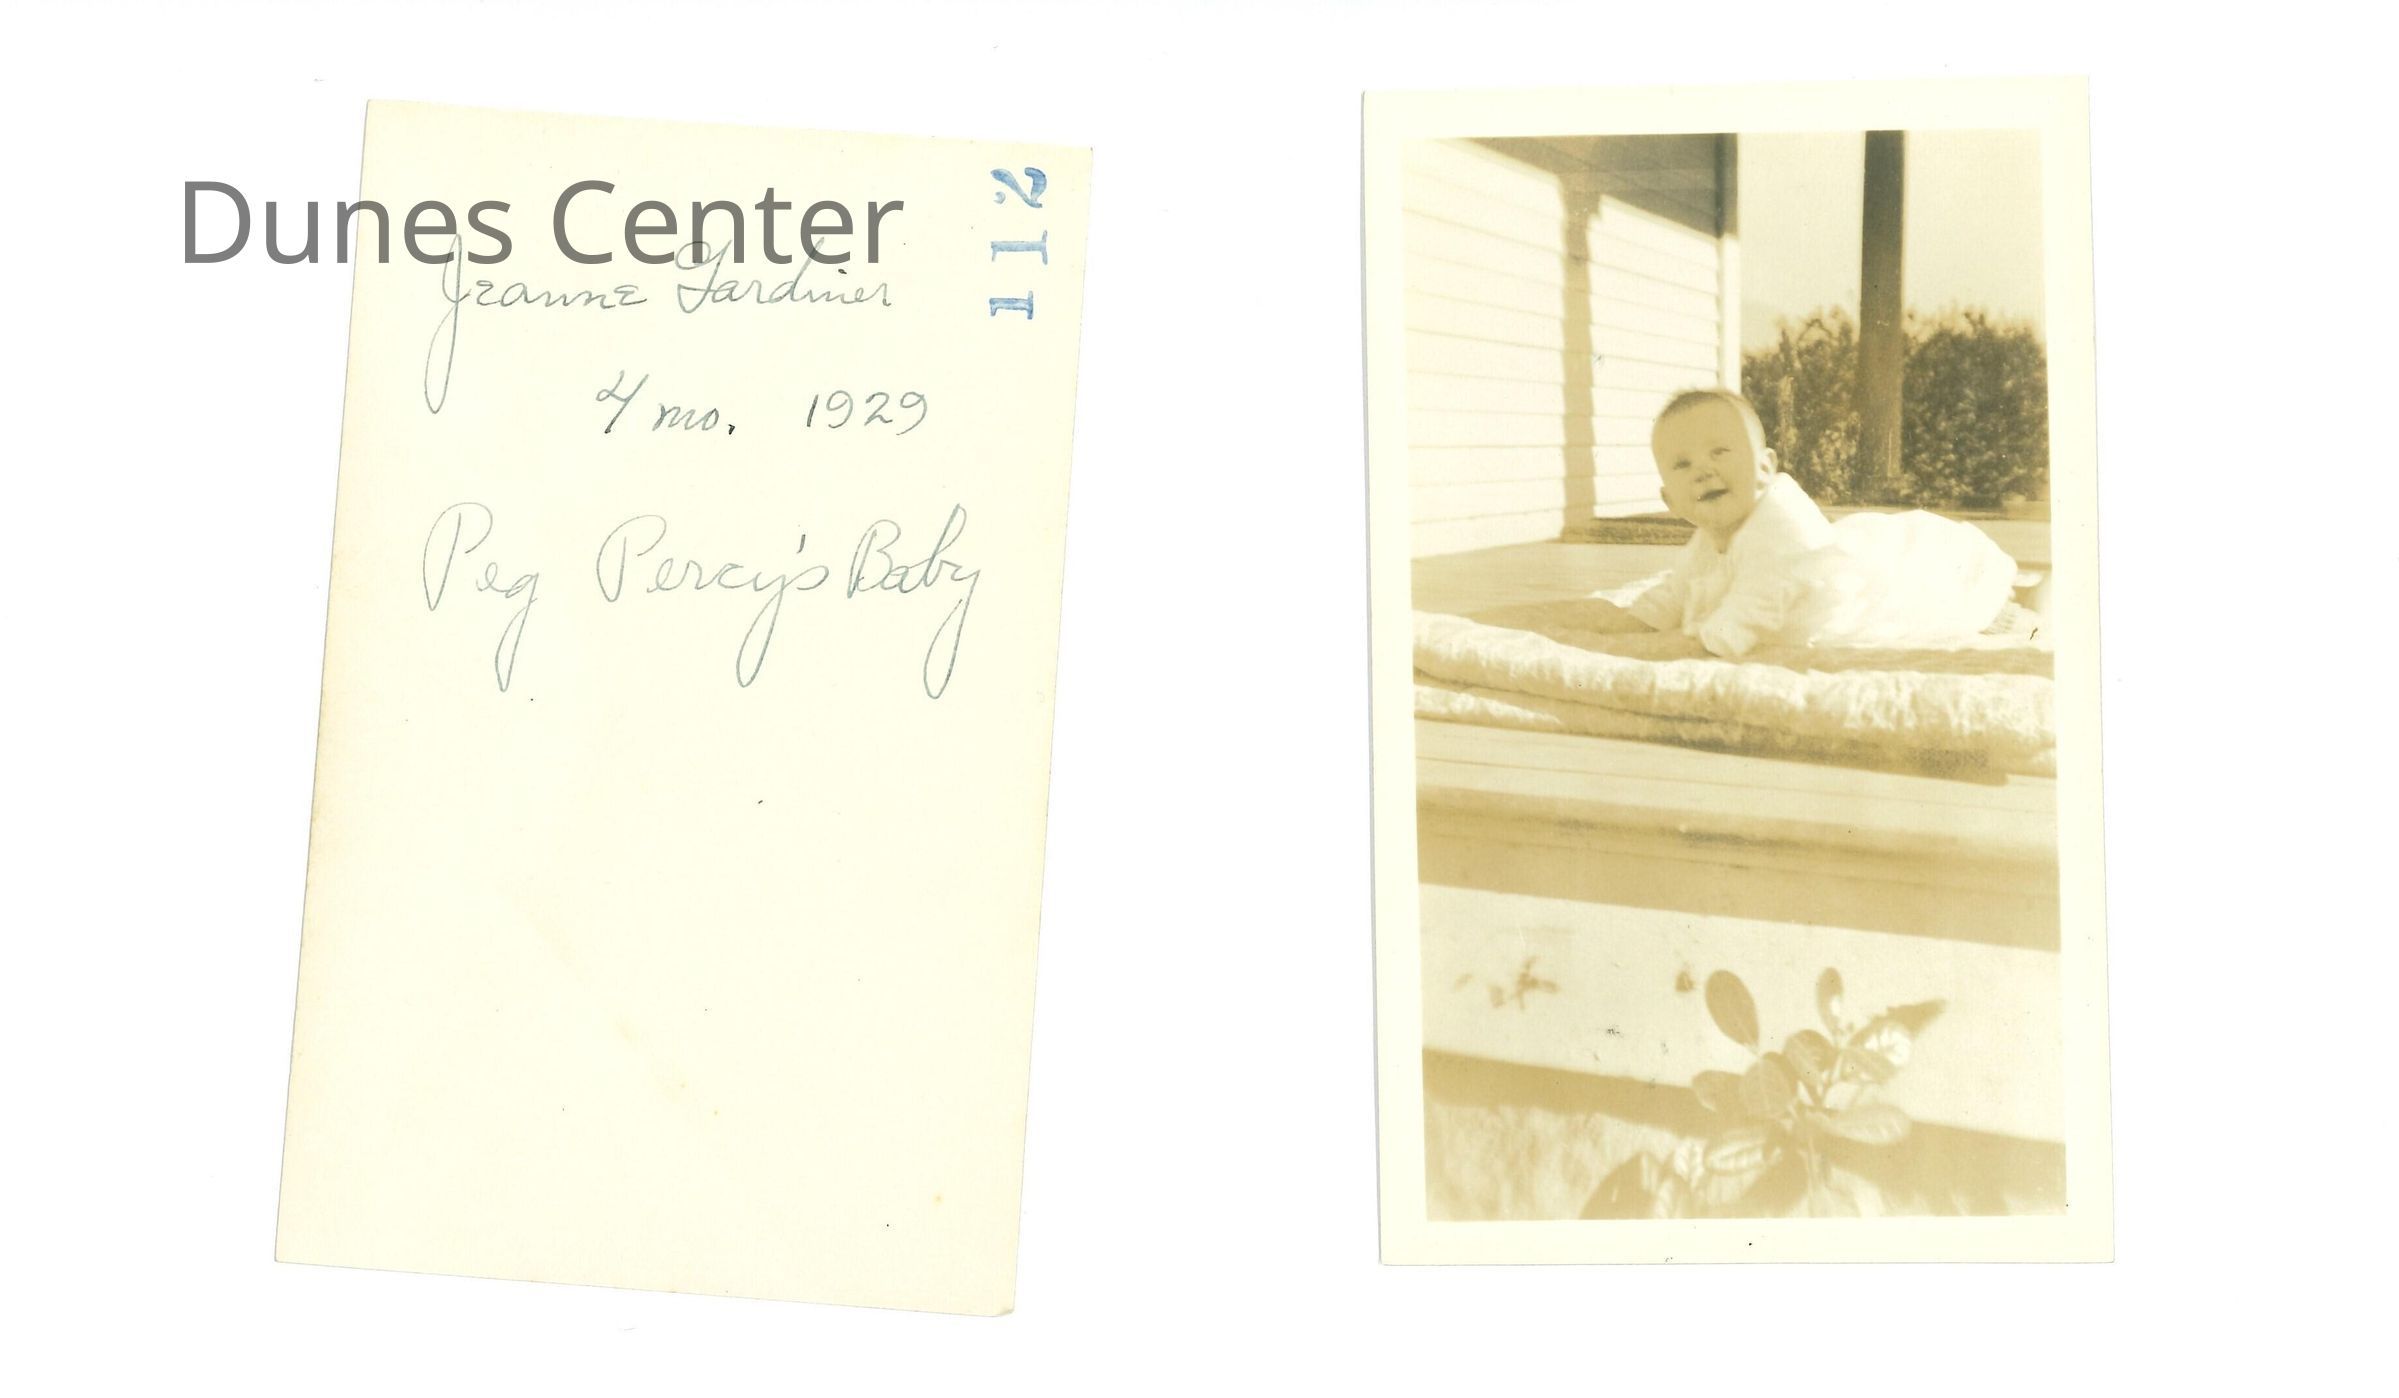 Dunes Center
112
Jeanne Gardiner
4 mo. 1929
Peg Percy's Baby